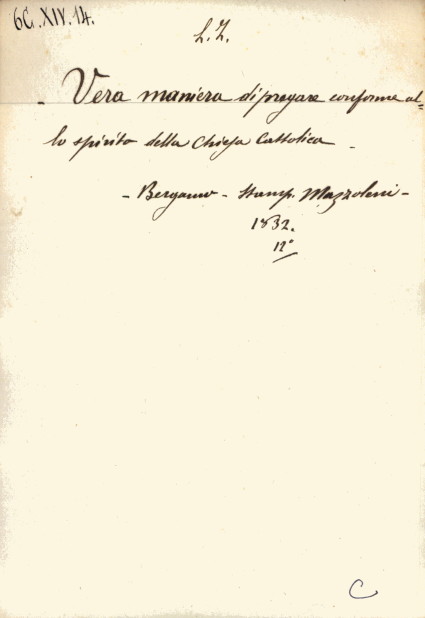 6C.XIV.14.
L. Z.
- Vera maniera di pregare conforme al-
lo spirito della Chiesa Cattolica -
- Bergamo - Stamp. Mazzoleni -
1832.
12°
C